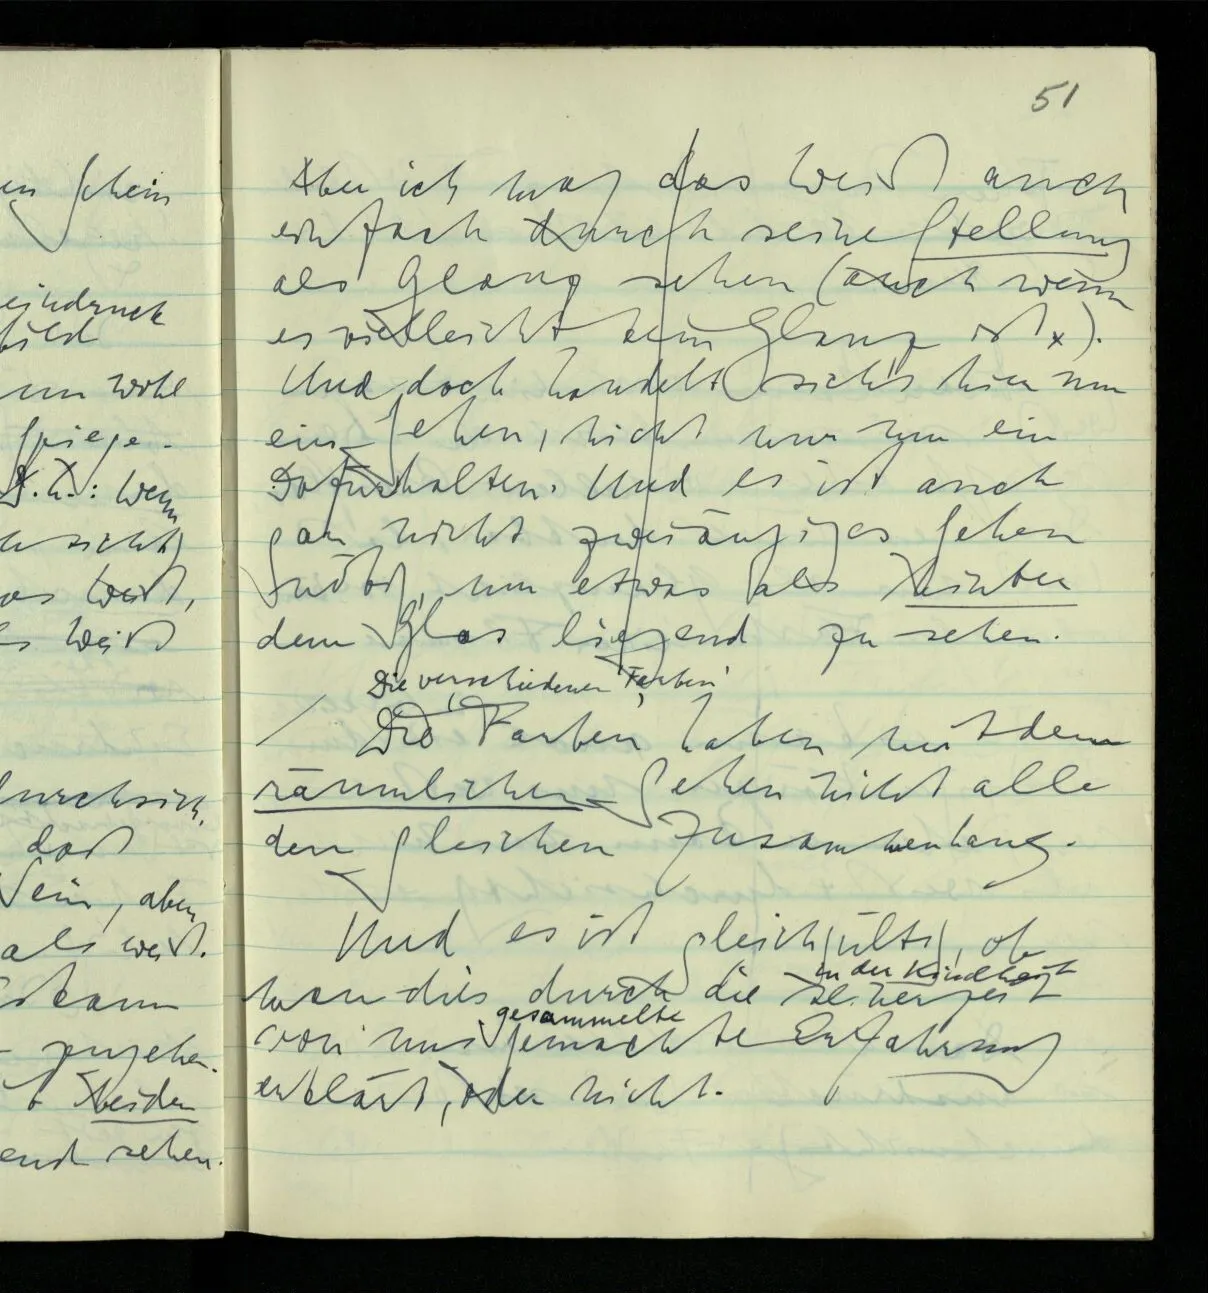 en Schein
eindruck
bild
nun wohl
Spiege-
D.h.: Wenn
sieht
das Weiß,
es Weiß
durchsich-
daß
sein, aber
als weiß.
Es kann
zugehen.
beiden
end sehen.
51
Aber ich mag das Weiß auch
einfach durch seine Stellung
als Glanz sehen (auch wenn
es vielleicht kein Glanz ist x).
Und doch handelt sich's hier um
ein Sehen, nicht nur um ein
Dafürhalten. Und es ist auch
gar nicht zweiäugiges Sehen
nötig, um etwas als hinter
dem Glas liegend zu sehen.
Die verschiedenen 'Farben'
/ Die 'Farben' haben mit dem
räumlichen Sehen nicht alle
den gleichen Zusammenhang.
Und es ist gleichgültig, ob
in der Kindheit
man dies durch die seinerzeit
gesammelte
von uns gemachte Erfahrung
erklärt, oder nicht.